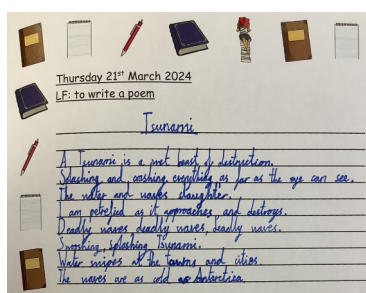 Thursday 21st March 2024
LF: to write a poem
Tsunami
A Tsunami is a wet beast of destruction.
Splashing and crashing everything as far as the eye can see.
The water and waves slaughter.
I am petrefied as it approaches and destroys.
Deadly waves deadly waves, deadly waves.
Swooshing, splashing Tsunami.
Water swipes at the towns and cities.
The waves are as cold as Antarctica.